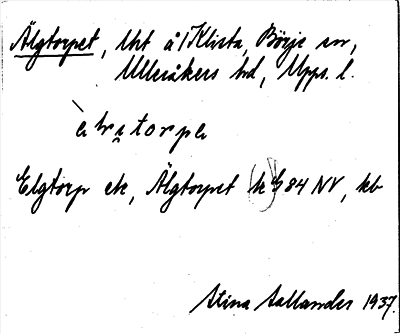 Älgtorpet, lht å /Klista, Börje sn,
Ulleråkers hd, Upps. l.
Elgtorp etc, Älgtorpet k G84 NV, kb
Stina Sallander 1937.